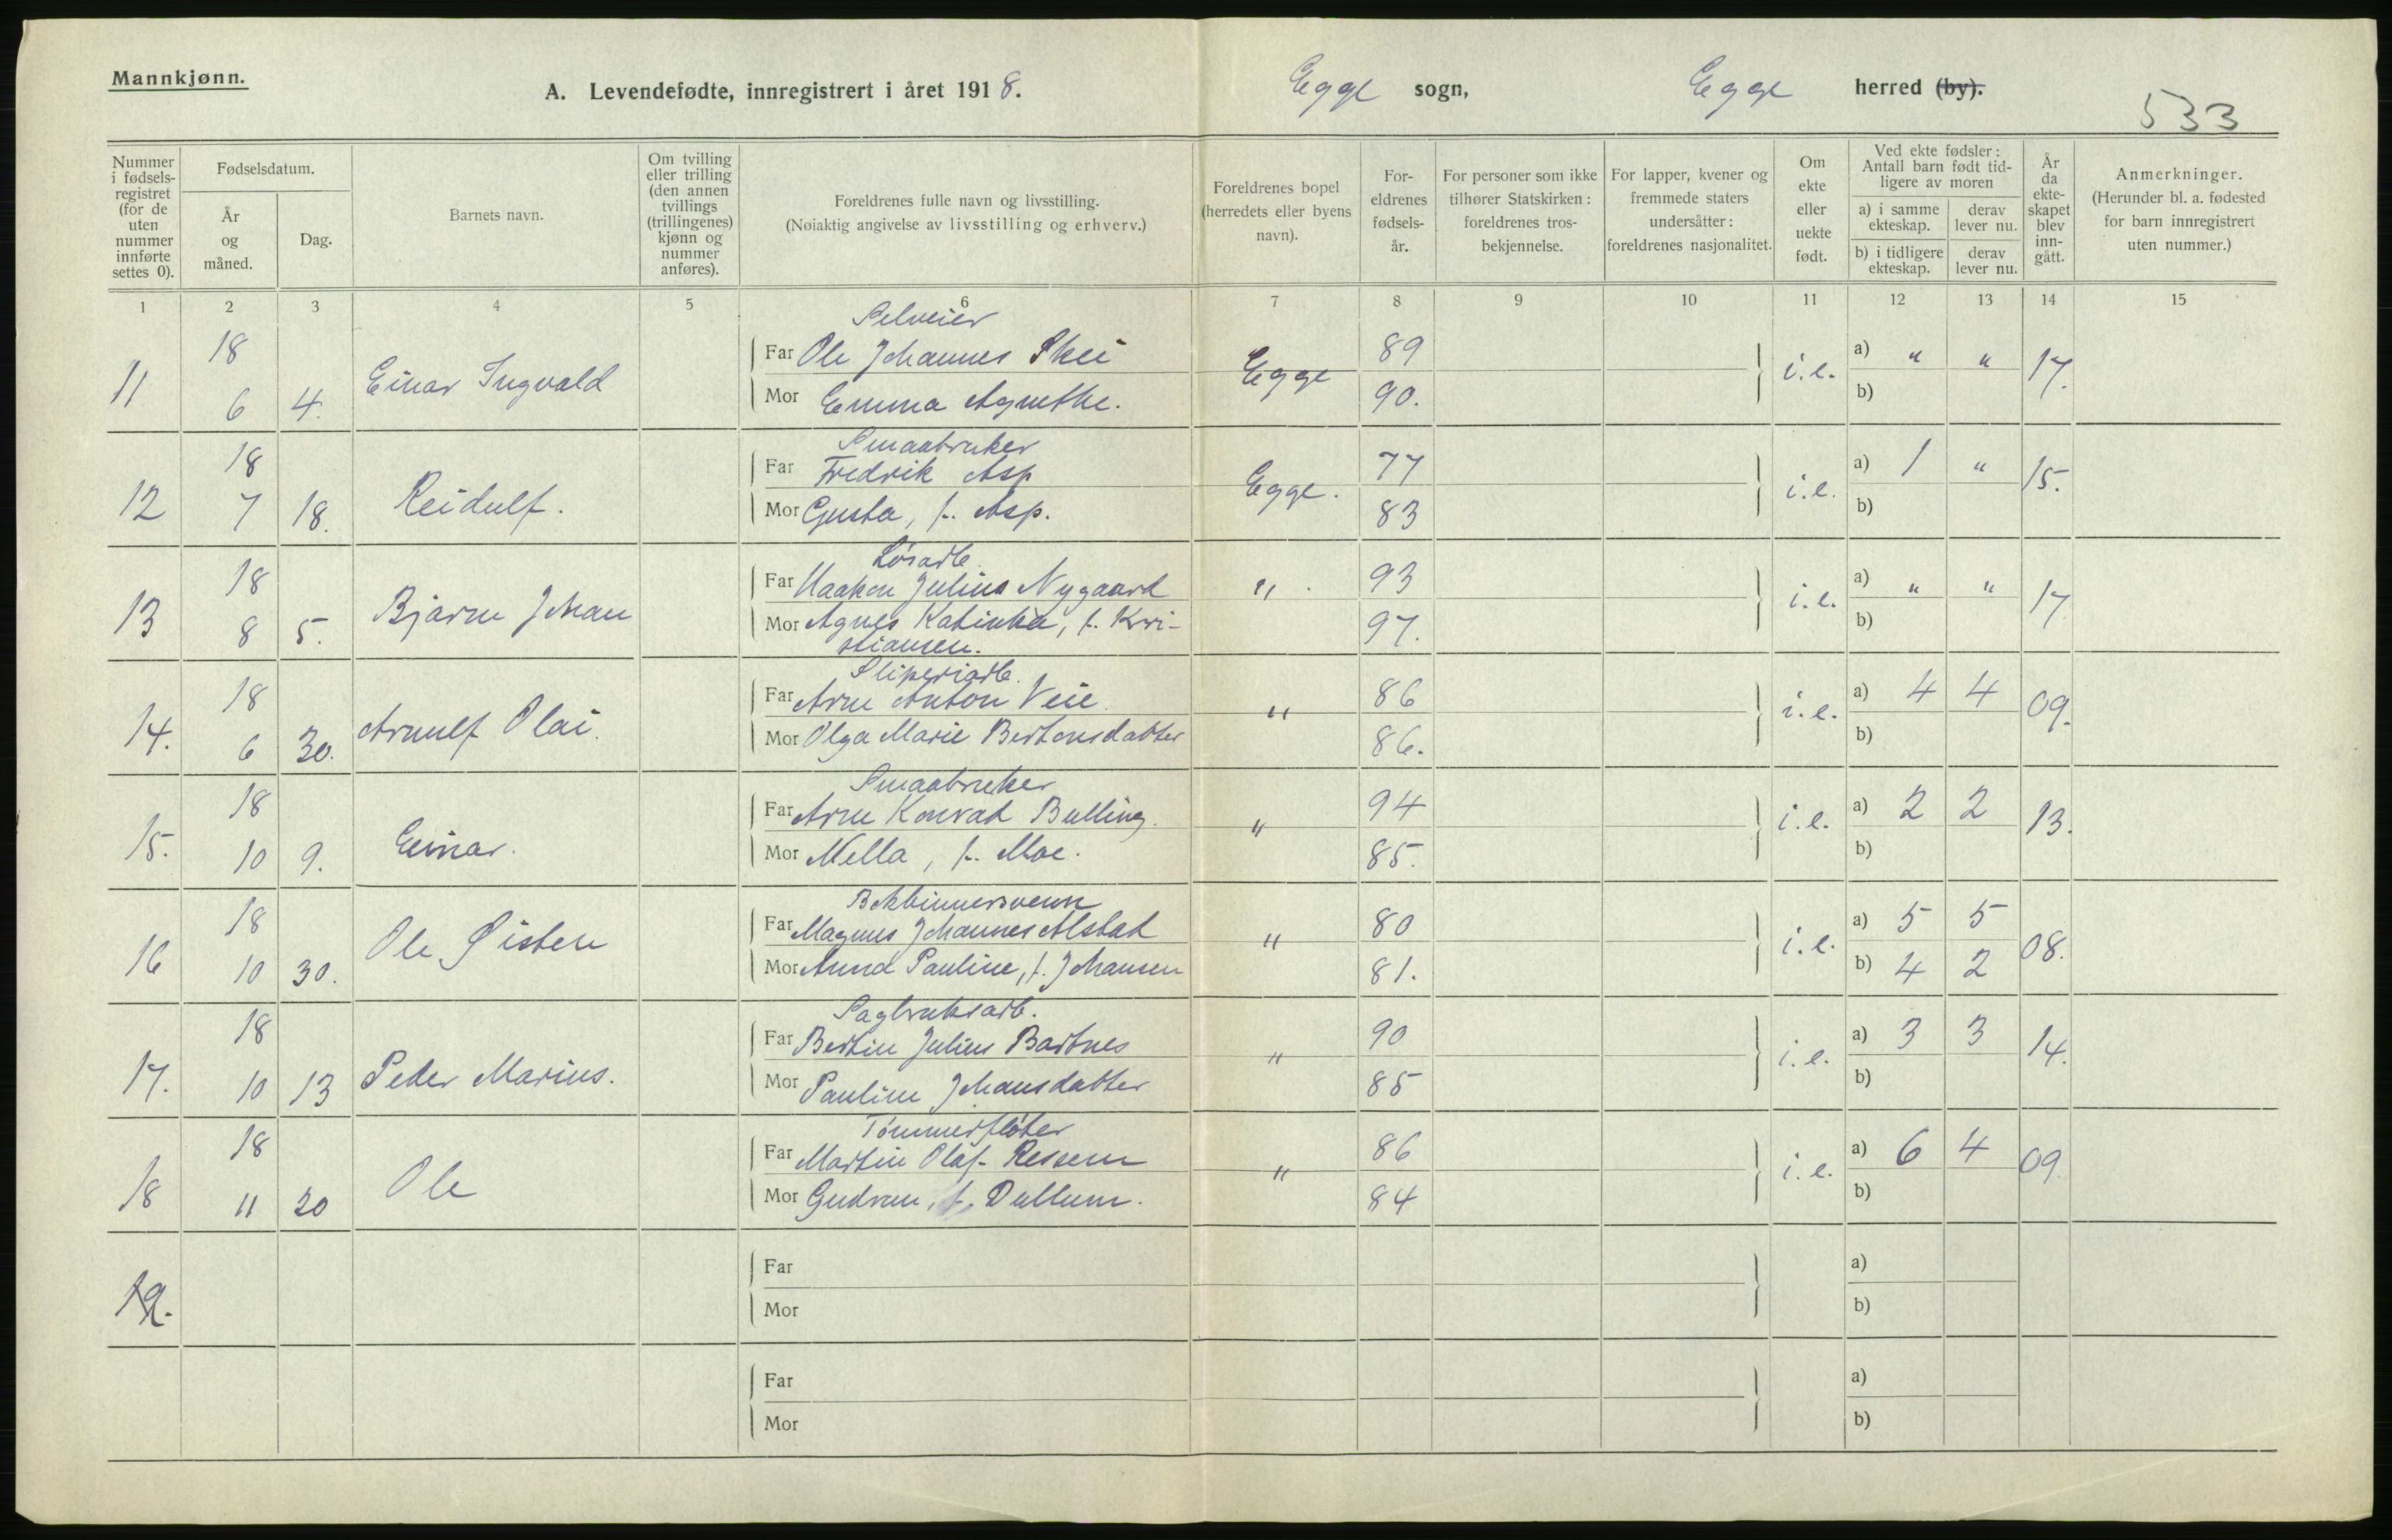 Mannkjønn.
A. Levendefødte, innregistrert i året 1918. Egge sogn, Egge herred (by).
533
Nummer i fødselsregistret (for de uten nummer innførte settes 0).
Fødselsdatum.
År og måned.
Dag.
Barnets navn.
Om tvilling eller trilling (den annen tvillings (trillingenes) kjønn og nummer anføres).
Foreldrenes fulle navn og livsstilling.
(Nøiaktig angivelse av livsstilling og erhverv.)
Foreldrenes bopel (herredets eller byens navn).
Foreldrenes fødselsår.
For personer som ikke tilhører Statskirken: foreldrenes trosbekjennelse.
For lapper, kvener og fremmede staters undersåtter: foreldrenes nasjonalitet.
Om ekte eller uekte født.
Ved ekte fødsler: Antall barn født tidligere av moren
a) i samme ekteskap.
derav lever nu.
b) i tidligere ekteskap.
derav lever nu.
År da ekteskapet blev inngått.
Anmerkninger.
(Herunder bl. a. fødested for barn innregistrert uten nummer.)
1 2 3 4 5 6 7 8 9 10 11 12 13 14 15
Selveier
18 Far Ole Johannes Skei 89 a) " "
11 6 4. Einar Ingvald Mor Emma Agnethe. Egge 90. i.e. b) 17.
Smaabruker
18 Far Fredrik Asp 77 a) 1 "
12 7 18. Reidulf. Mor Gusta, f. Asp. Egge. 83 i.e. b) 15.
Løsarb.
18 Far Haakon Julius Nygaard 93 a) " "
13 8 5. Bjarne Johan Mor Agnes Katinka, f. Kri- " 97. i.e. b) 17
stiansen.
Sliperiarb.
18 Far Arne Anton Veie. 86 a) 4 4
14. 6 30. Arnulf Olai. Mor Olga Marie Bertensdatter " 86. i.e. b) 09.
Smaabruker
18 Far Arne Konrad Bulling. 94 a) 2 2
15. 10 9. Einar. Mor Mella, f. Moe. " 85. i.e. b) 13.
Bokbinnersvenn
18 Far Magnus Johannes Alstad 80 a) 5 5
16 10 30. Ole Øisten Mor Anna Pauline, f. Johansen " 81. i.e. b) 4 2 08.
Sagbruksarb.
18 Far Bertin Julius Bartnes 90 a) 3 3
17. 10 13 Peder Marius. Mor Pauline Johansdatter " 85 i.e. b) 14.
Tømmerfløter
18 Far Martin Olaf Ressem 86 a) 6 4
18 11 20 Ole Mor Gudrun, f. Dullum. " 84 i.e. b) 09.
Far a)
19. Mor b)
Far a)
Mor b)